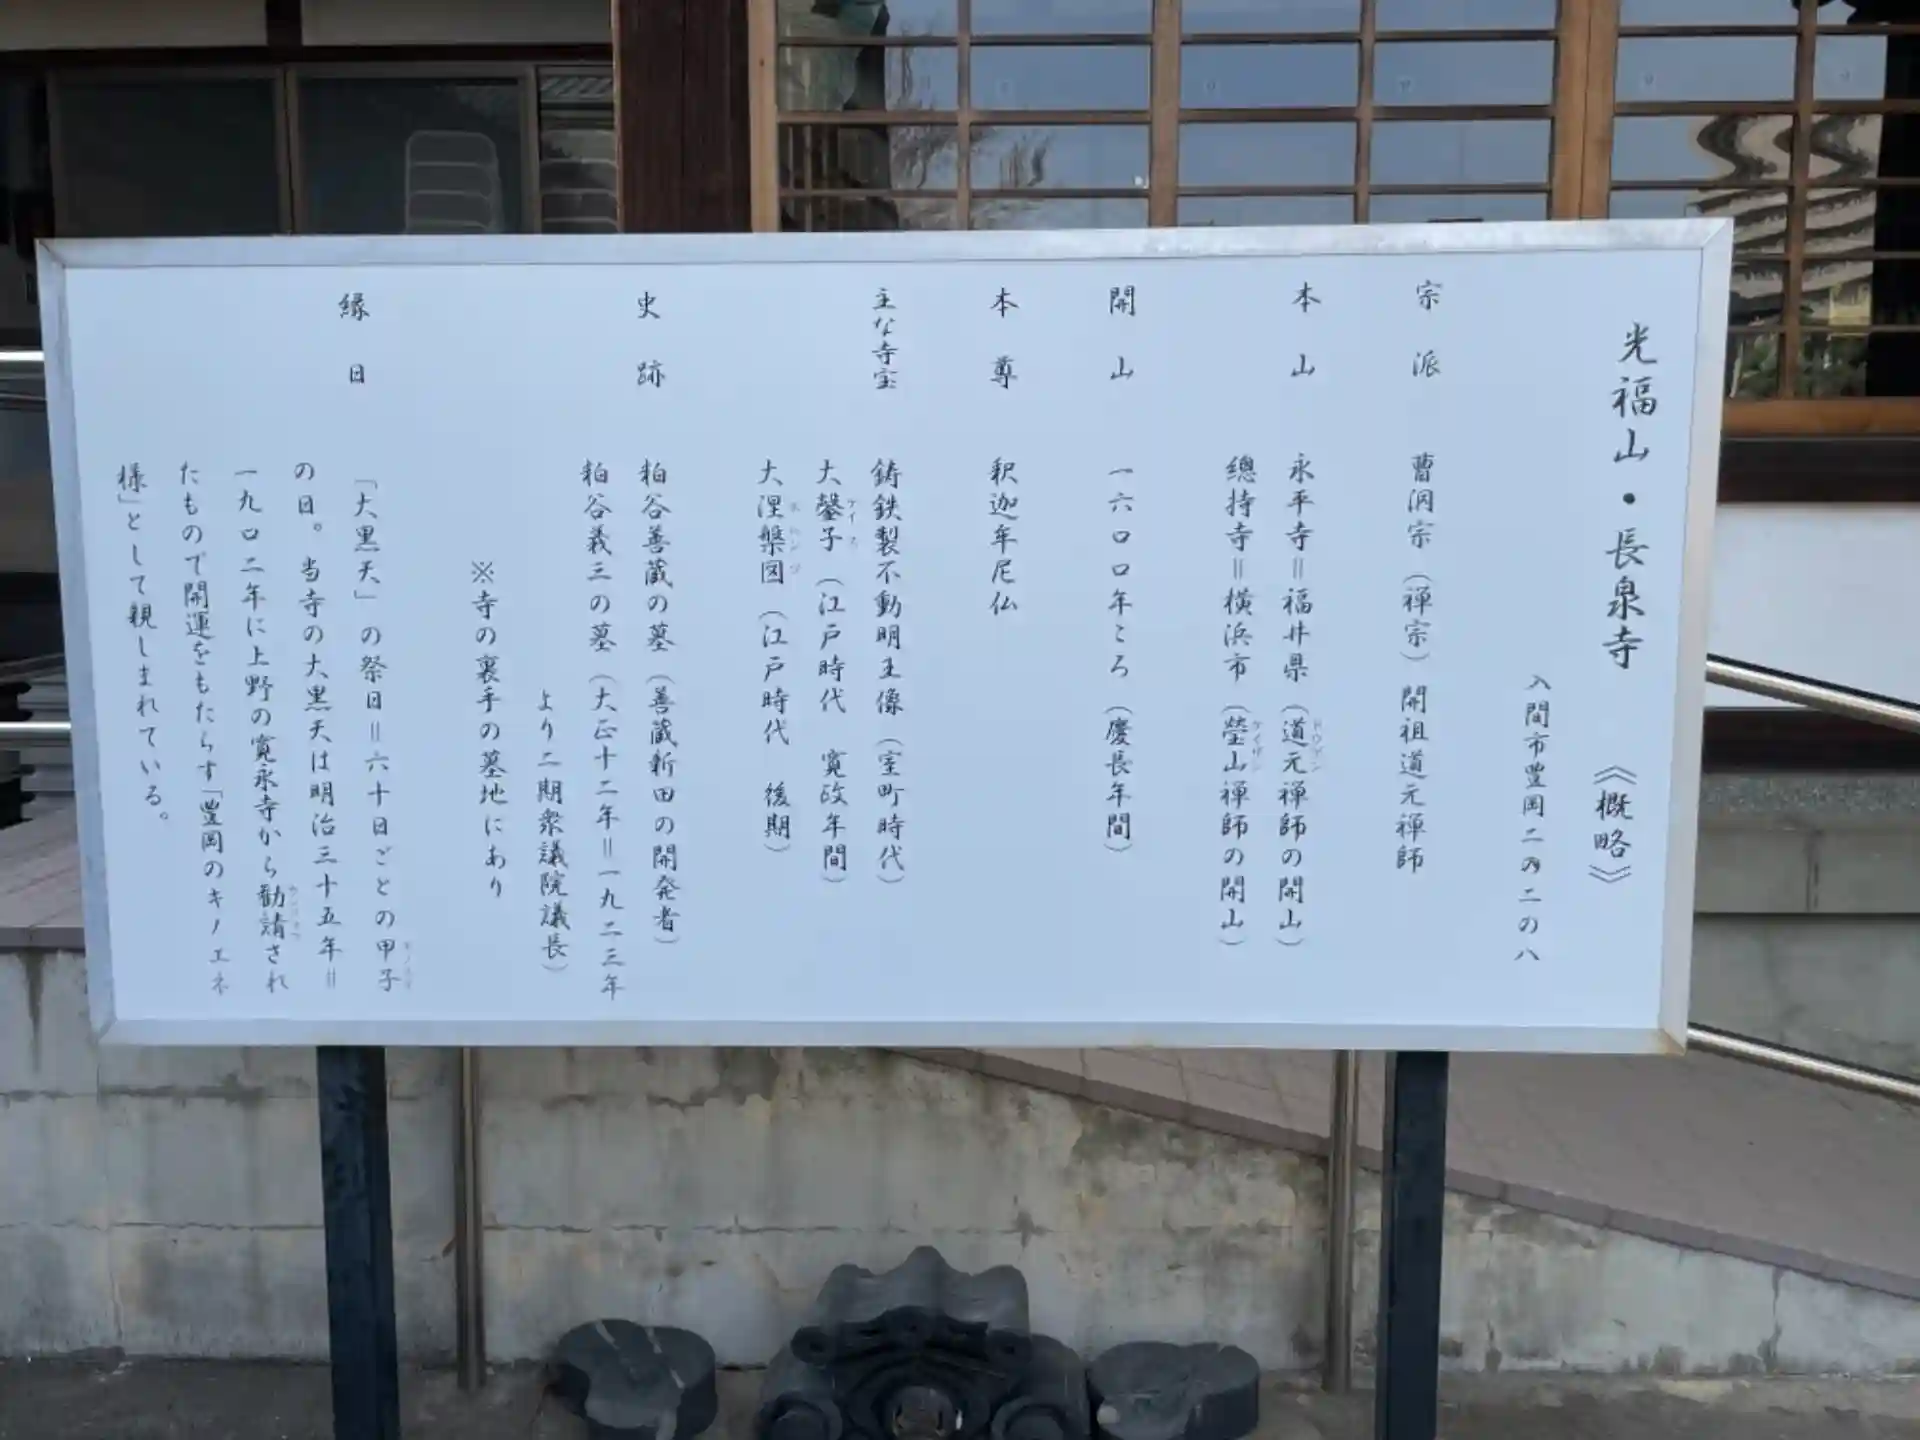 光福山・長泉寺 《概略》
入間市豊岡二の二の八
宗派 曹洞宗（禅宗）開祖道元禅師
本山 永平寺＝福井県（道元禅師の開山）
ドウゲン
總持寺＝横浜市（瑩山禅師の開山）
ケイザン
開山 一六〇〇年ころ（慶長年間）
本尊 釈迦牟尼仏
主な寺宝 鋳鉄製不動明王像（室町時代）
大鏧子（江戸時代 寛政年間）
ケイス
大涅槃図（江戸時代 後期）
ネハンズ
史跡 粕谷善蔵の墓（善蔵新田の開発者）
粕谷義三の墓（大正十二年＝一九二三年
より二期衆議院議長）
※寺の裏手の墓地にあり
縁日 「大黒天」の祭日＝六十日ごとの甲子
の日。当寺の大黒天は明治三十五年＝
一九〇二年に上野の寛永寺から勧請され
たもので開運をもたらす「豊岡のキノエネ
様」として親しまれている。